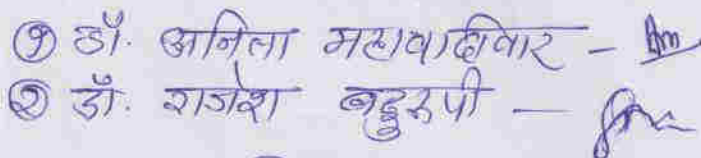 १ डॉ. अनिता महावादीवार -
२ डॉ. राजेश बहुरुपी -